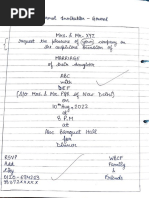 Formal Invitation - General
Mr. & Mrs. XYZ
Request the pleasure of your company on
the auspicious occasion of
MARRIAGE
of their daughter
ABC
with
DEF
(S/o Mr. & Mrs. PQR of New Delhi)
on
10th Aug, 2023
at
8 P.M
at
Abc Banquet Hall
for
Dinner
RSVP
WBCF
Add
Family
City
&
Friends